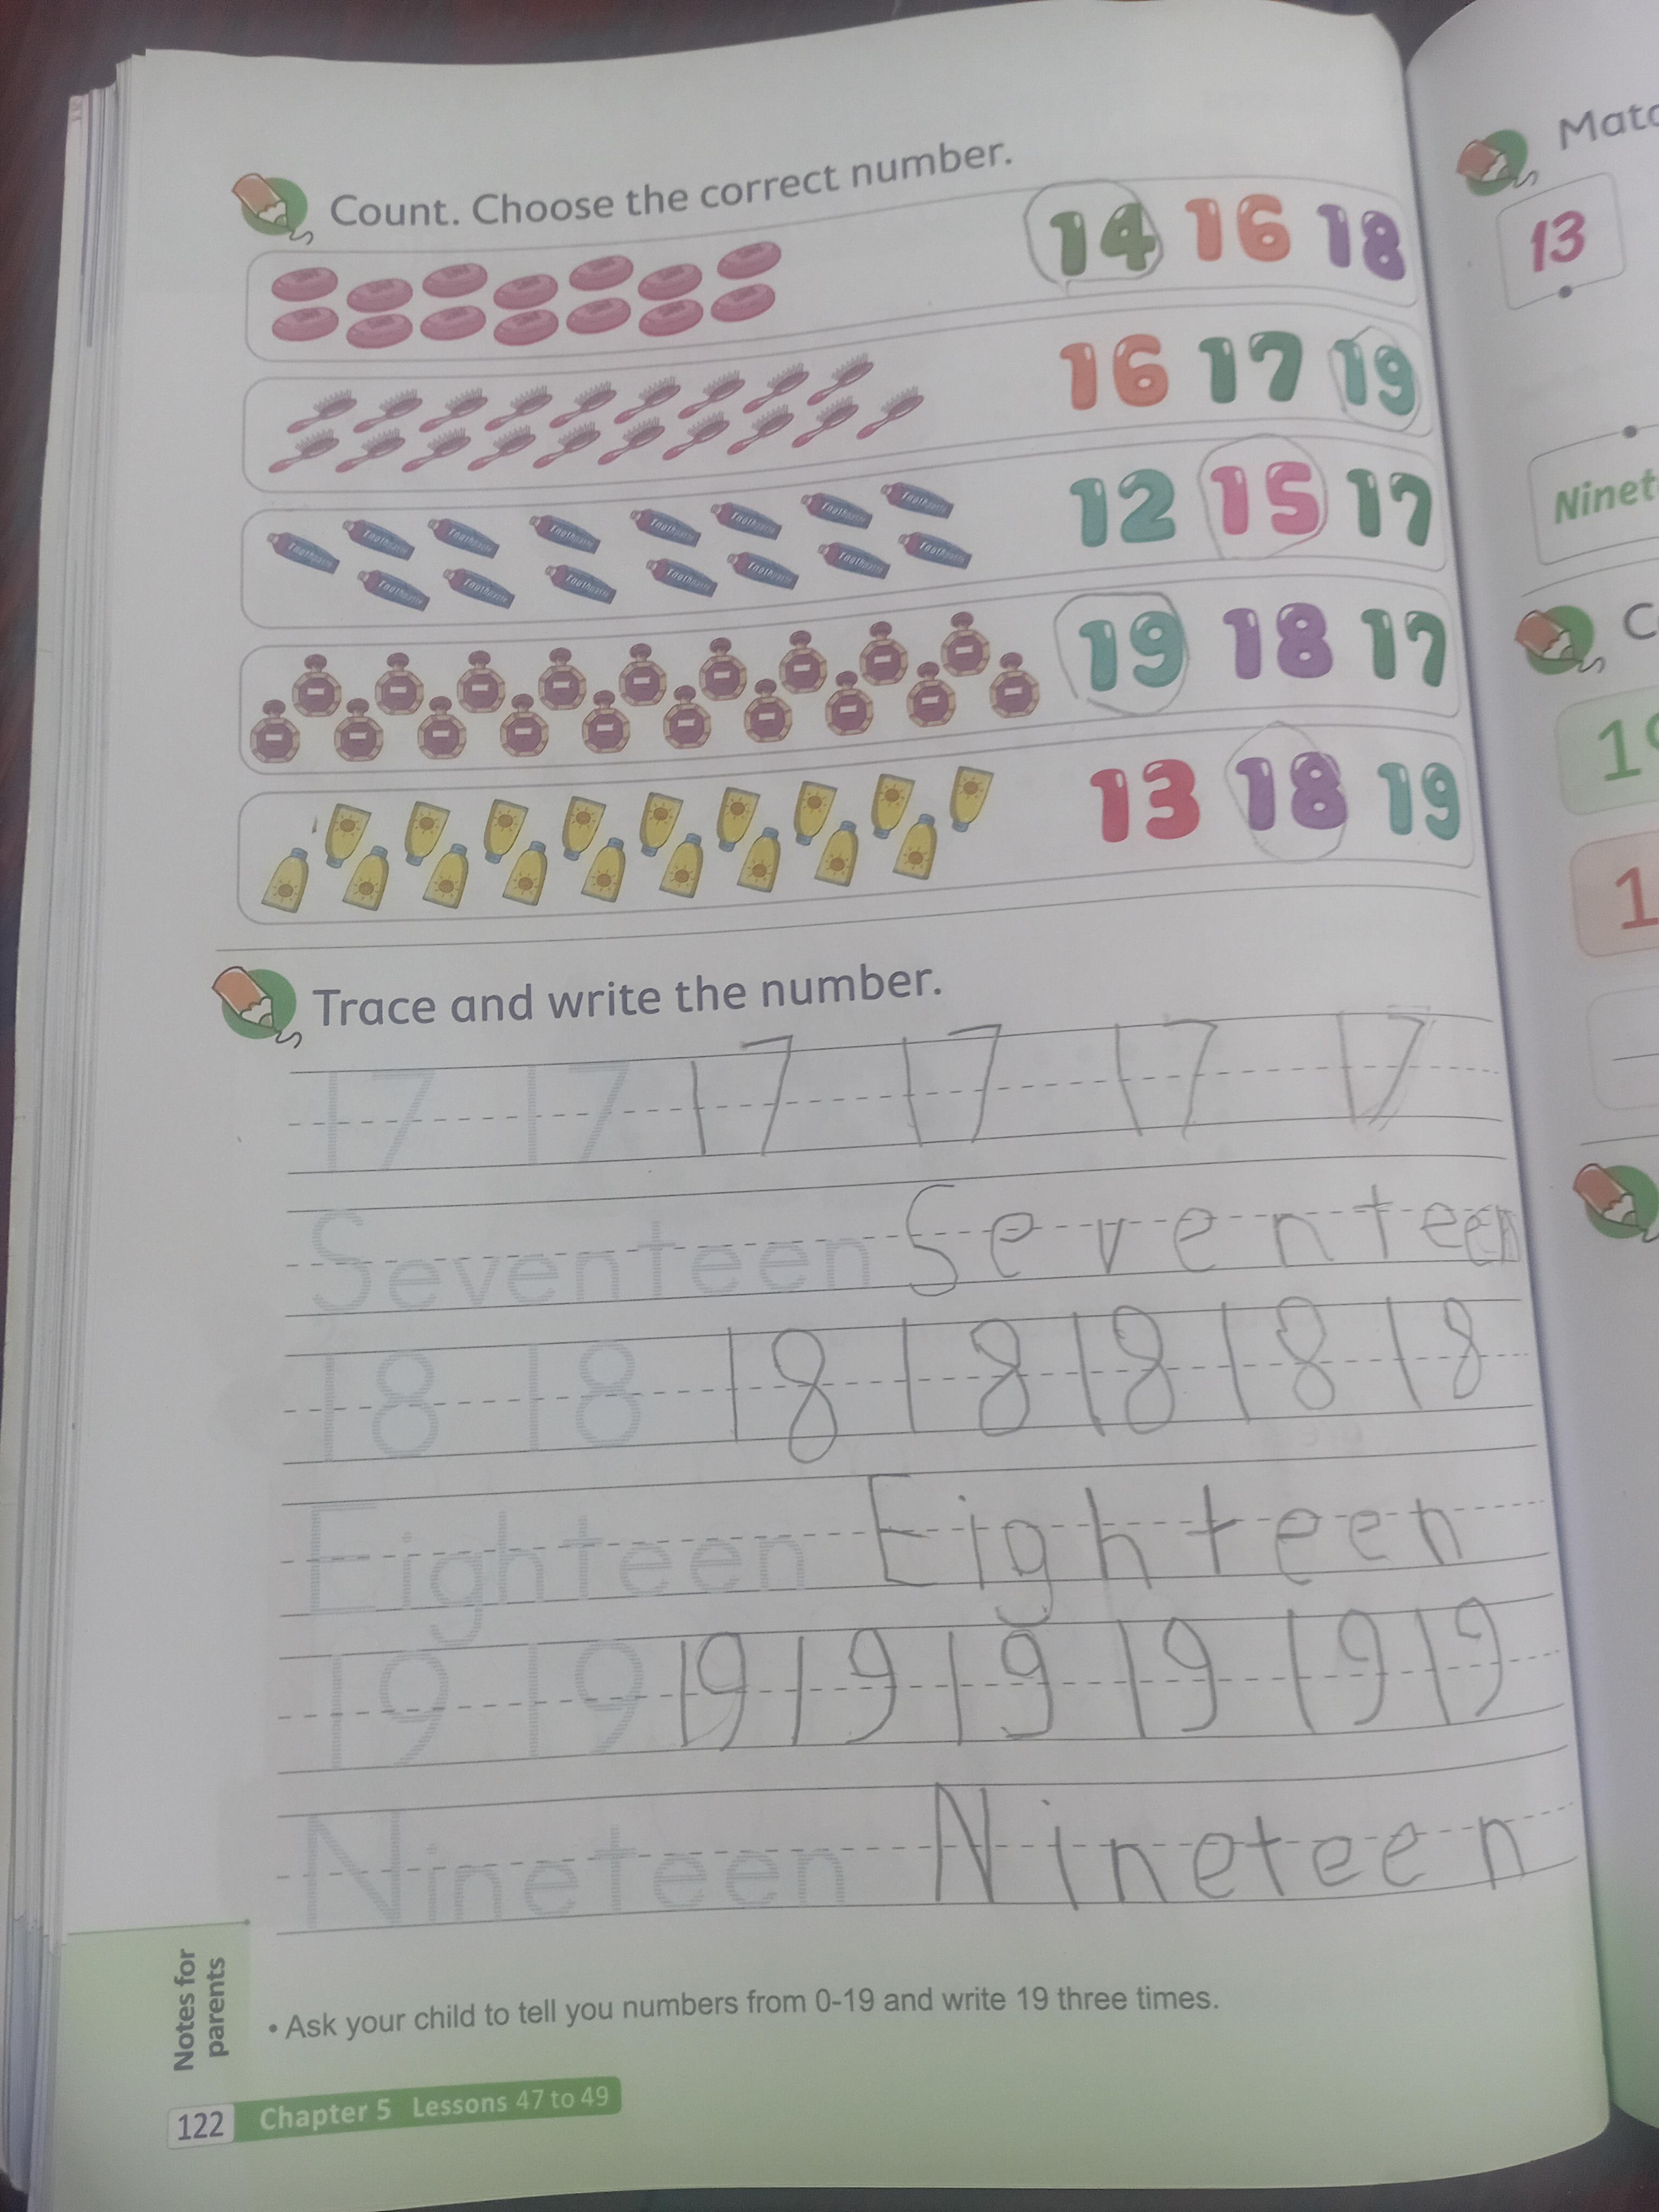 Count. Choose the correct number.
14 16 18
16 17 19
Toothpaste Toothpaste Toothpaste Toothpaste Toothpaste Toothpaste Toothpaste Toothpaste
Toothpaste Toothpaste Toothpaste Toothpaste Toothpaste Toothpaste Toothpaste
12 15 17
19 18 17
13 18 19
Trace and write the number.
17 17 17 17 17 17
Seventeen Seventeen
18 18 18 18 18 18 18
Eighteen Eighteen
19 19 19 19 19 19 19 19
Nineteen Nineteen
Notes for
parents
• Ask your child to tell you numbers from 0-19 and write 19 three times.
122 Chapter 5 Lessons 47 to 49
13